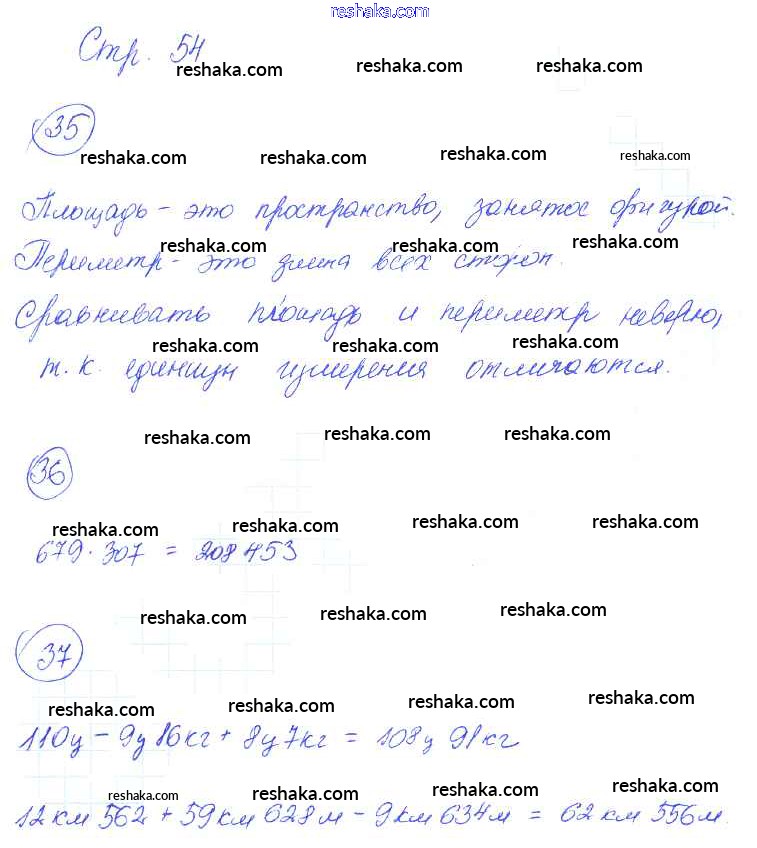 reshaka.com
Стр. 54
reshaka.com reshaka.com reshaka.com
35
reshaka.com reshaka.com reshaka.com reshaka.com
Площадь - это пространство, занятое фигурой.
reshaka.com reshaka.com reshaka.com
Периметр - это длина всех сторон.
Сравнивать площадь и периметр неверно,
reshaka.com reshaka.com reshaka.com
т.к. единицы измерения отличаются.
reshaka.com reshaka.com reshaka.com
36
reshaka.com reshaka.com reshaka.com reshaka.com
679 · 307 = 208 453
reshaka.com reshaka.com reshaka.com
37
reshaka.com reshaka.com reshaka.com reshaka.com
110ц - 9ц 16кг + 8ц 7кг = 108ц 91кг
reshaka.com reshaka.com reshaka.com reshaka.com
12км 562 + 59км 628м - 9км 634м = 62км 556м.